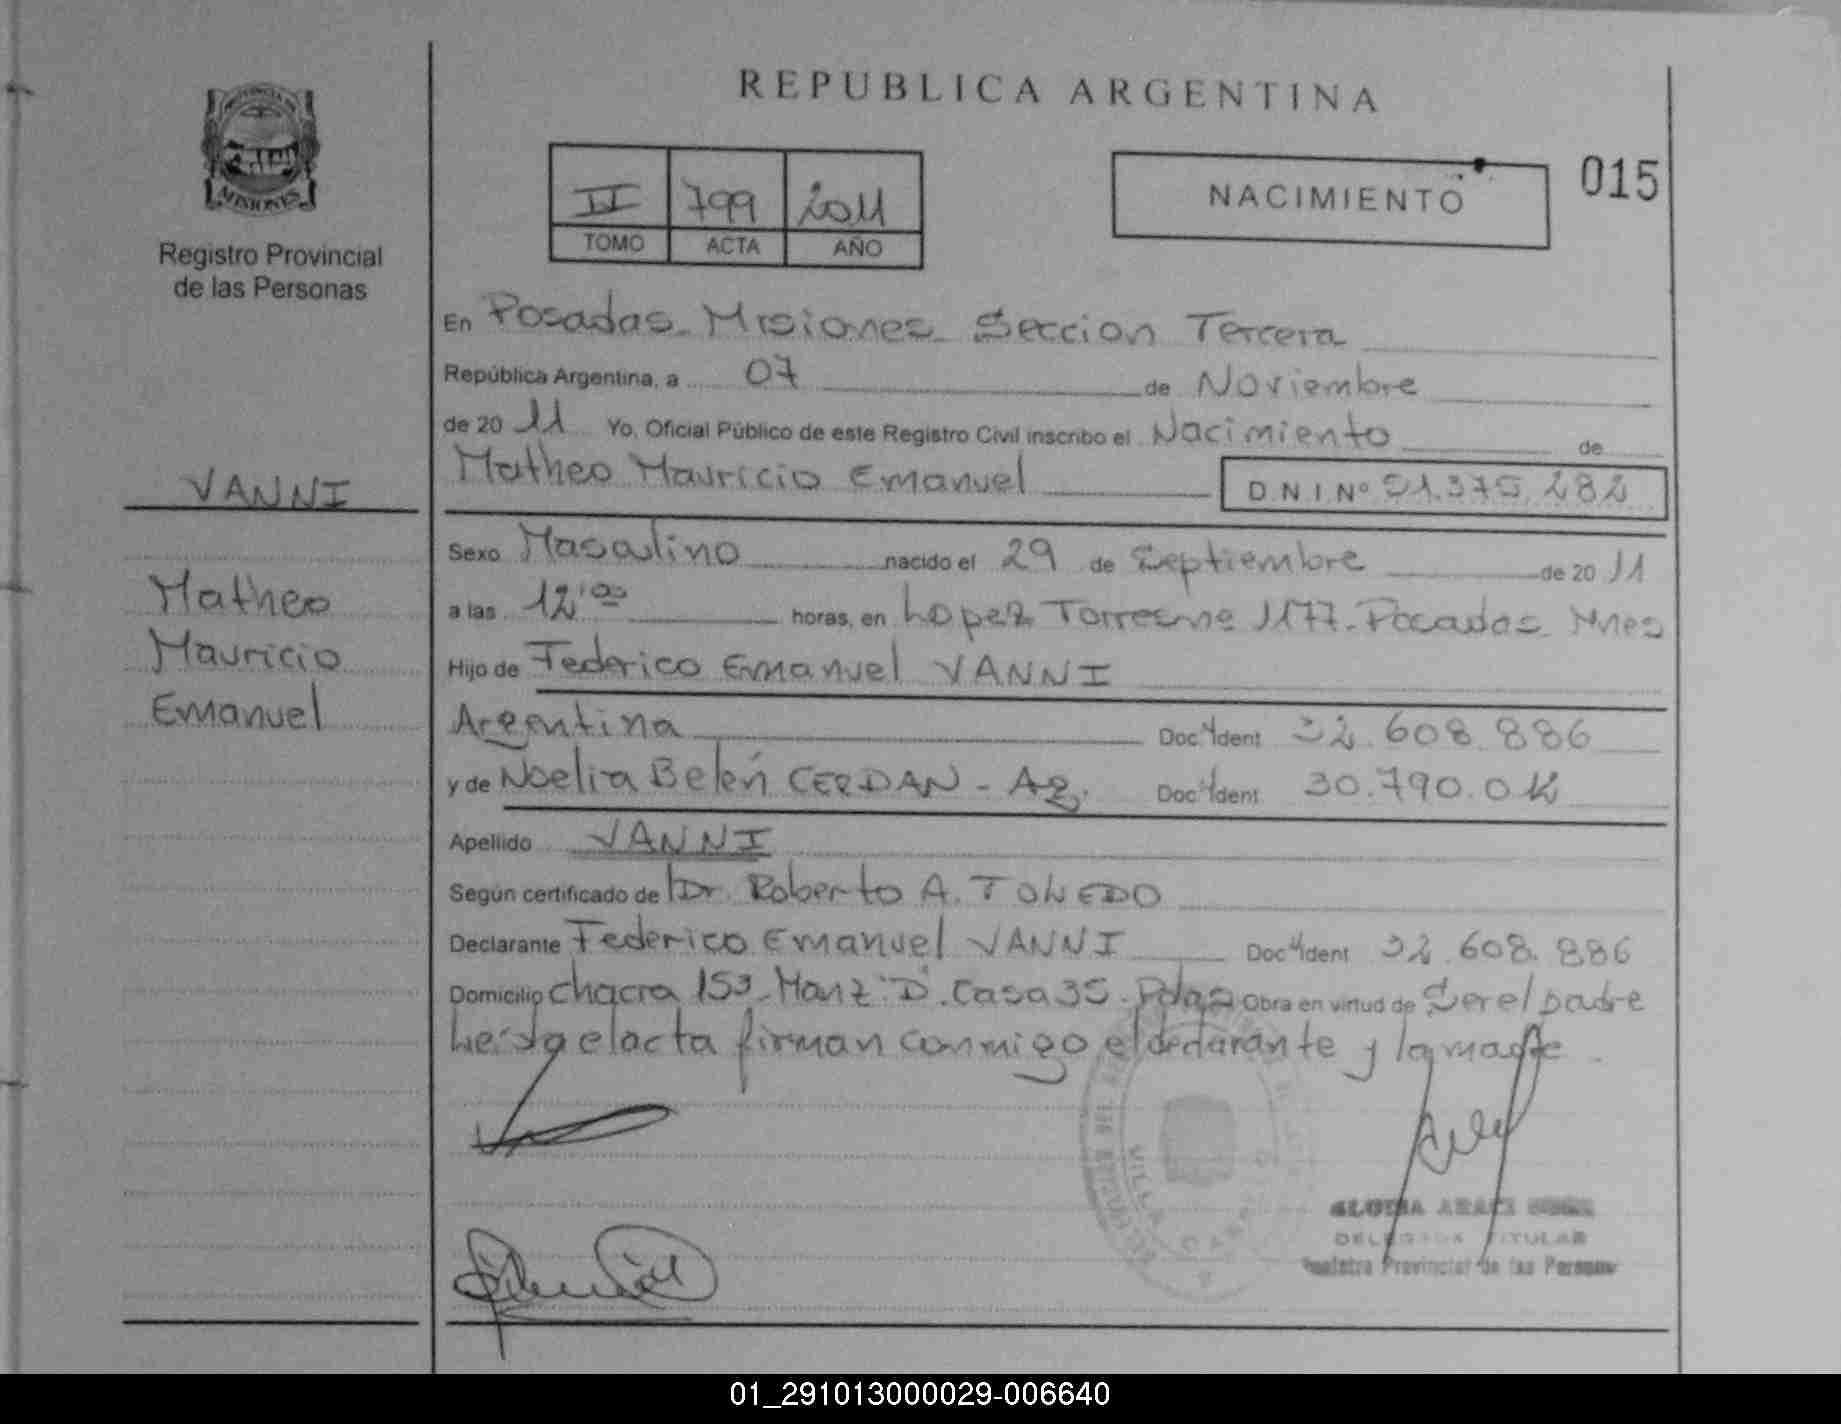 REPUBLICA ARGENTINA
PROVINCIA DE
MISIONES
Registro Provincial
de las Personas
II 799 2011
TOMO ACTA AÑO
NACIMIENTO
015
En Posadas - Misiones - Seccion Tercera
República Argentina, a 07 de Noviembre
de 20 11 Yo, Oficial Público de este Registro Civil inscribo el Nacimiento de
Matheo Mauricio Emanuel D.N.I.Nº 51.375.282
VANNI
Matheo
Mauricio
Emanuel
Sexo Masculino nacido el 29 de Septiembre de 20 11
a las 12:00 horas, en Lopez Torres Nº 1177 - Posadas Mnes
Hijo de Federico Emanuel VANNI
Argentina Doc Ident 32.608.886
y de Noelia Belén CERDAN - Ag. Doc Ident 30.790.0
Apellido VANNI
Según certificado de Dr. Roberto A. TOLEDO
Declarante Federico Emanuel VANNI Doc Ident 32.608.886
Domicilio chacra 153 - Manz "D". Casa 35 - Pdas Obra en virtud de Ser el padre
Leida el acta firman conmigo el declarante y la madre.
VILLA CABELLO
DELEGADA TITULAR
Registro Provincial de las Personas
01_291013000029-006640